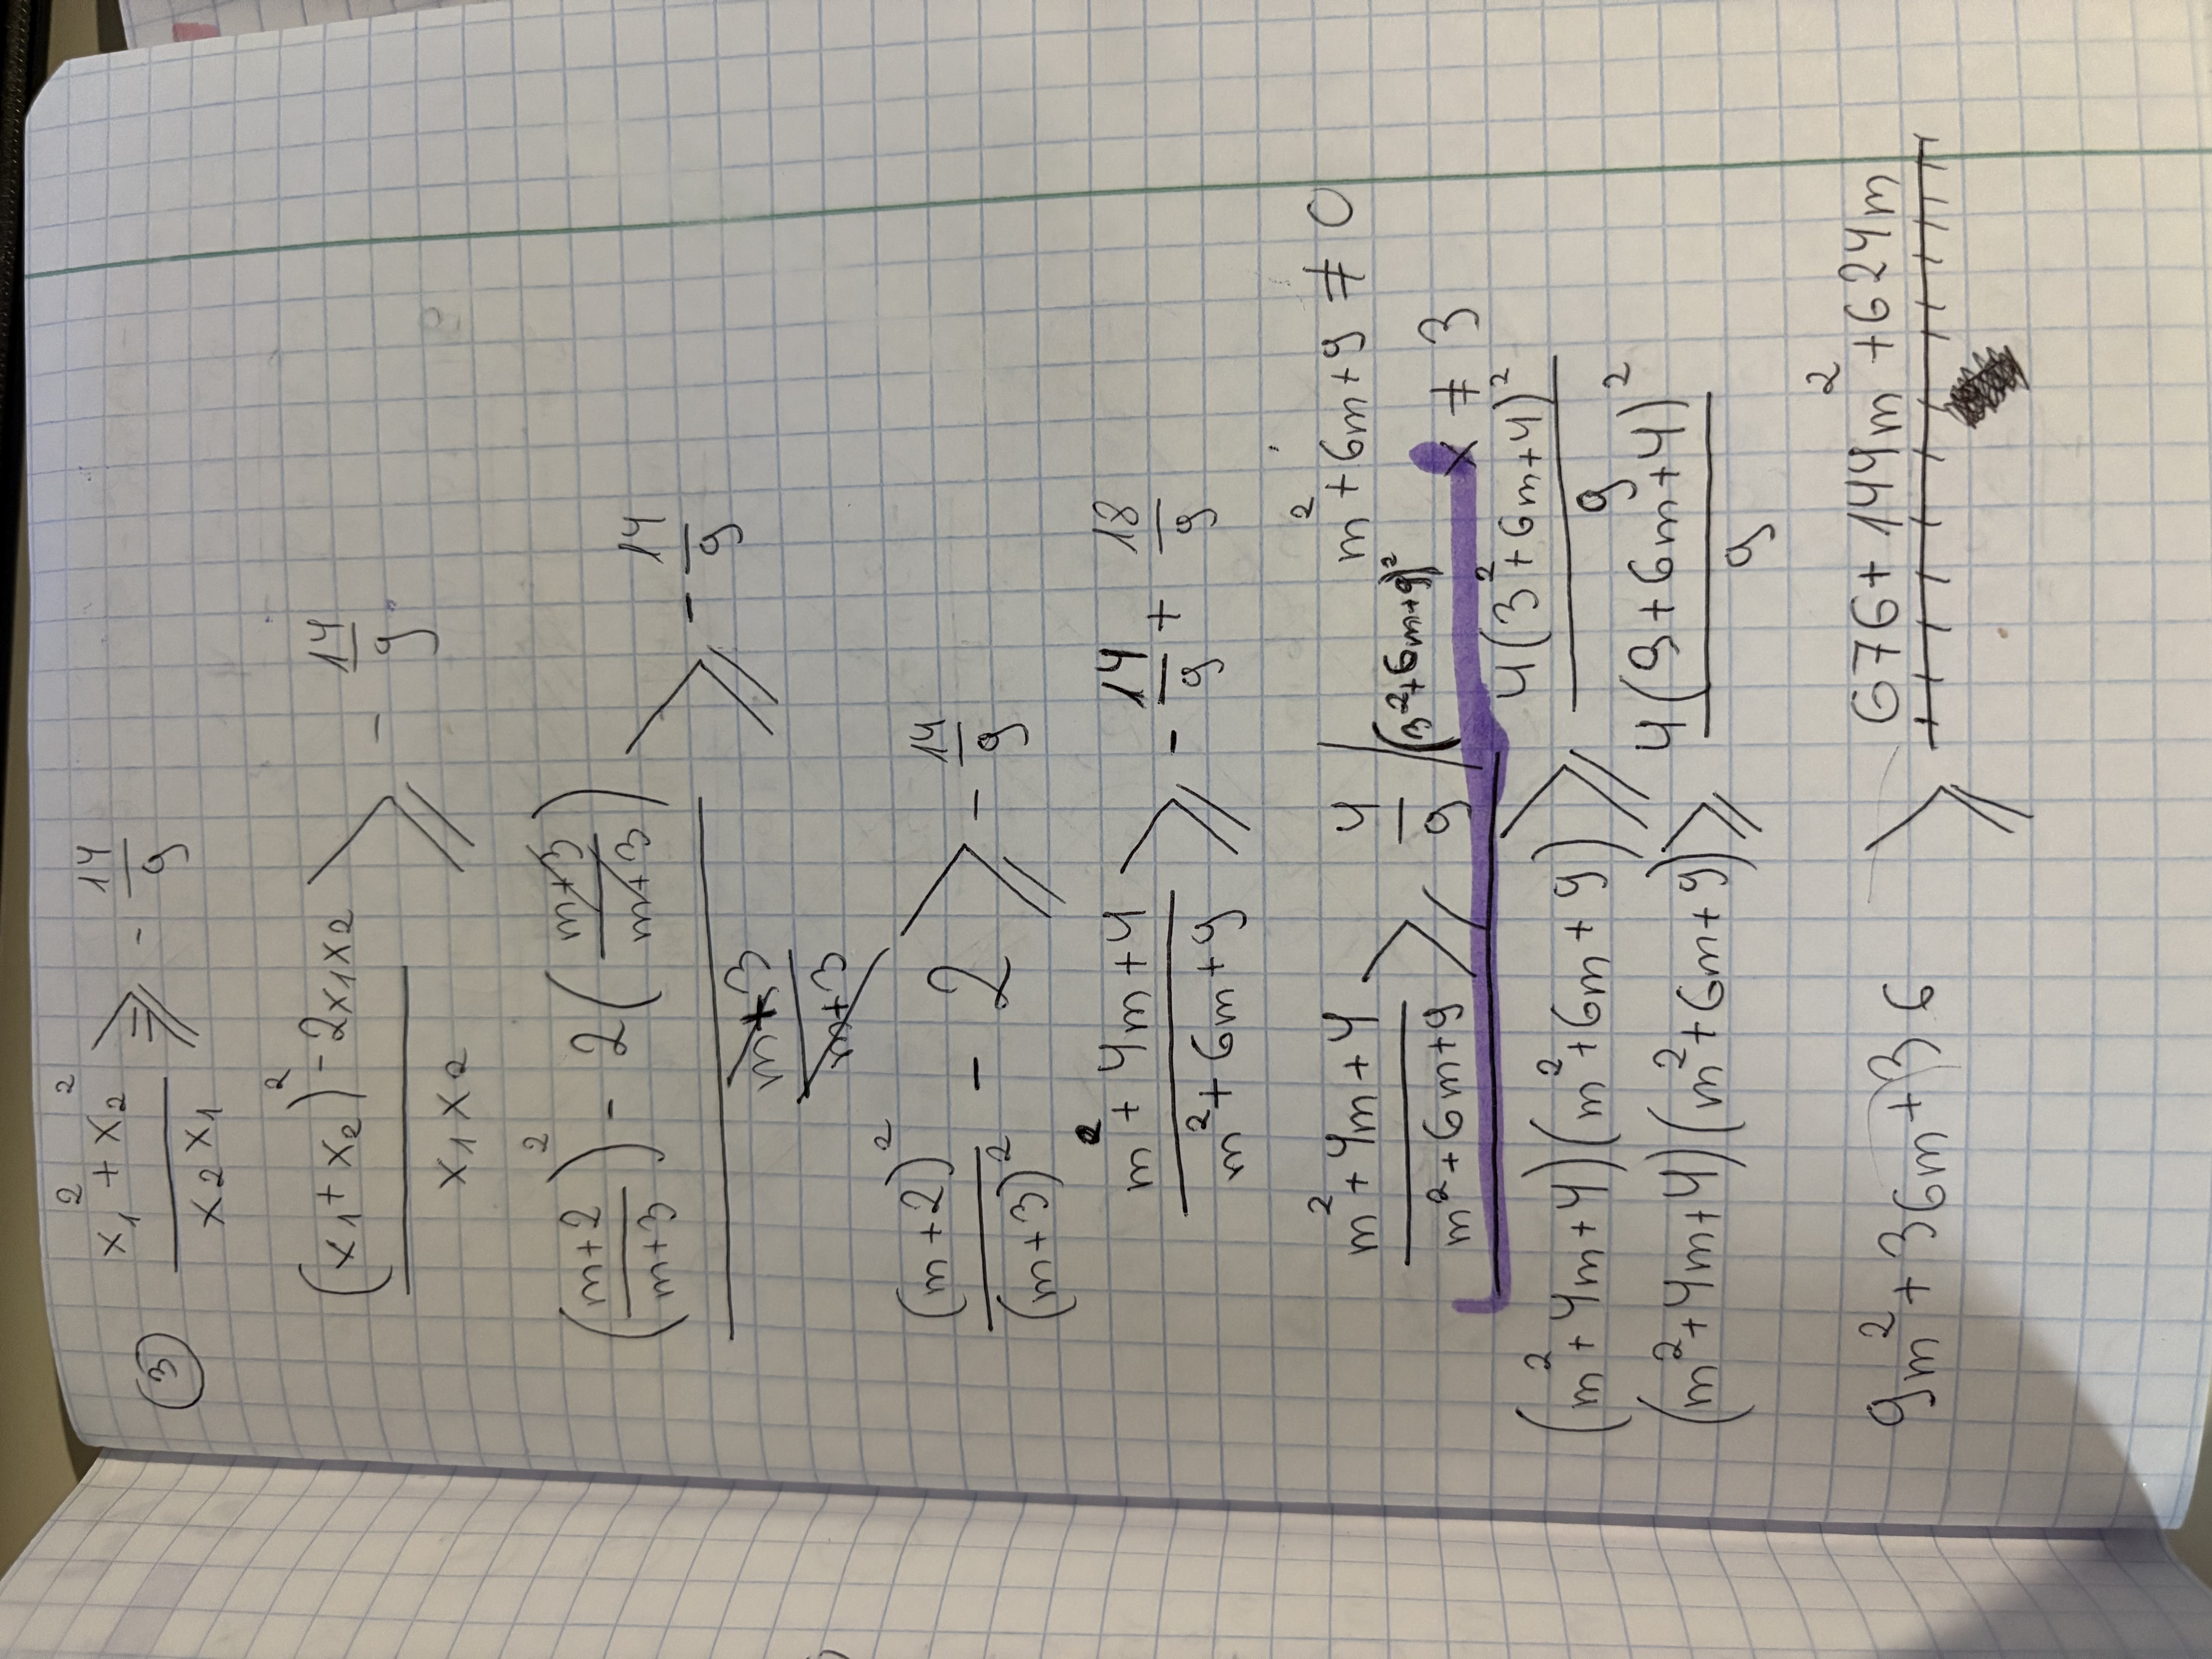 ③ (x₁² + x₂²)/(x₂x₁) ⩾ - 14/9
((x₁ + x₂)² - 2x₁x₂)/(x₁x₂) ⩾ - 14/9
(((m+2)/(m+3))² - 2((m+3)/(m+3)))/((m+3)/(m+3)) ⩾ - 14/9
(m+2)²/(m+3)² - 2 ⩾ - 14/9
(m² + 4m + 4)/(m² + 6m + 9) ⩾ - 14/9 + 18/9
(m² + 4m + 4)/(m² + 6m + 9) ⩾ 4/9 /(3²+6m+9)² m² + 6m + 9 ≠ 0
x ≠ 3
(m² + 4m + 4)(m² + 6m + 9) ⩾ 4(3² + 6m + 4)²/9
(m² + 4m + 4)(m² + 6m + 9) ⩾ 4(9 + 6m + 4)²/9
9m² + 36m + 36 ⩾ 676 + 144m² + 624m